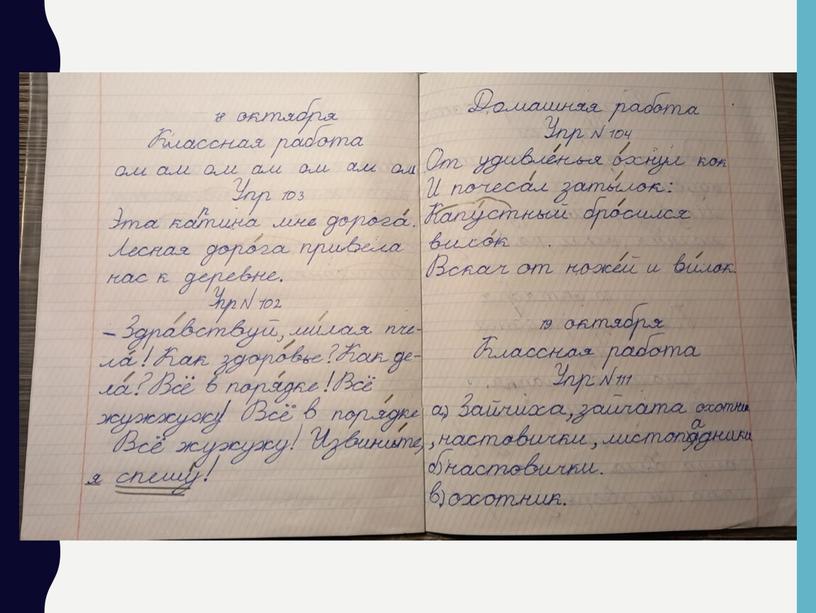 8 октября
Классная работа
ам ам ам ам ам ам ам
Упр 103
Эта картина мне дорога́.
Лесная доро́га привела
нас к деревне.
Упр N 102
– Здра́вствуй, ми́лая пче-
ла́! Как здоро́вье? Как де-
ла́? Всё в поря́дке! Всё
жужжужу! Всё в поря́дке
Всё жужужу! Извини́те,
я спешу́!
Домашняя работа
Упр N 104
От удивле́нья о́хнул кок
И почеса́л заты́лок:
Капу́стный бро́сился
вило́к
Вскач от ноже́й и ви́лок.
19 октября
Классная работа
Упр N 111
а) Зайчиха, зайчата охотник
, настовички, листопадники
б) настовички.
в) охотник.